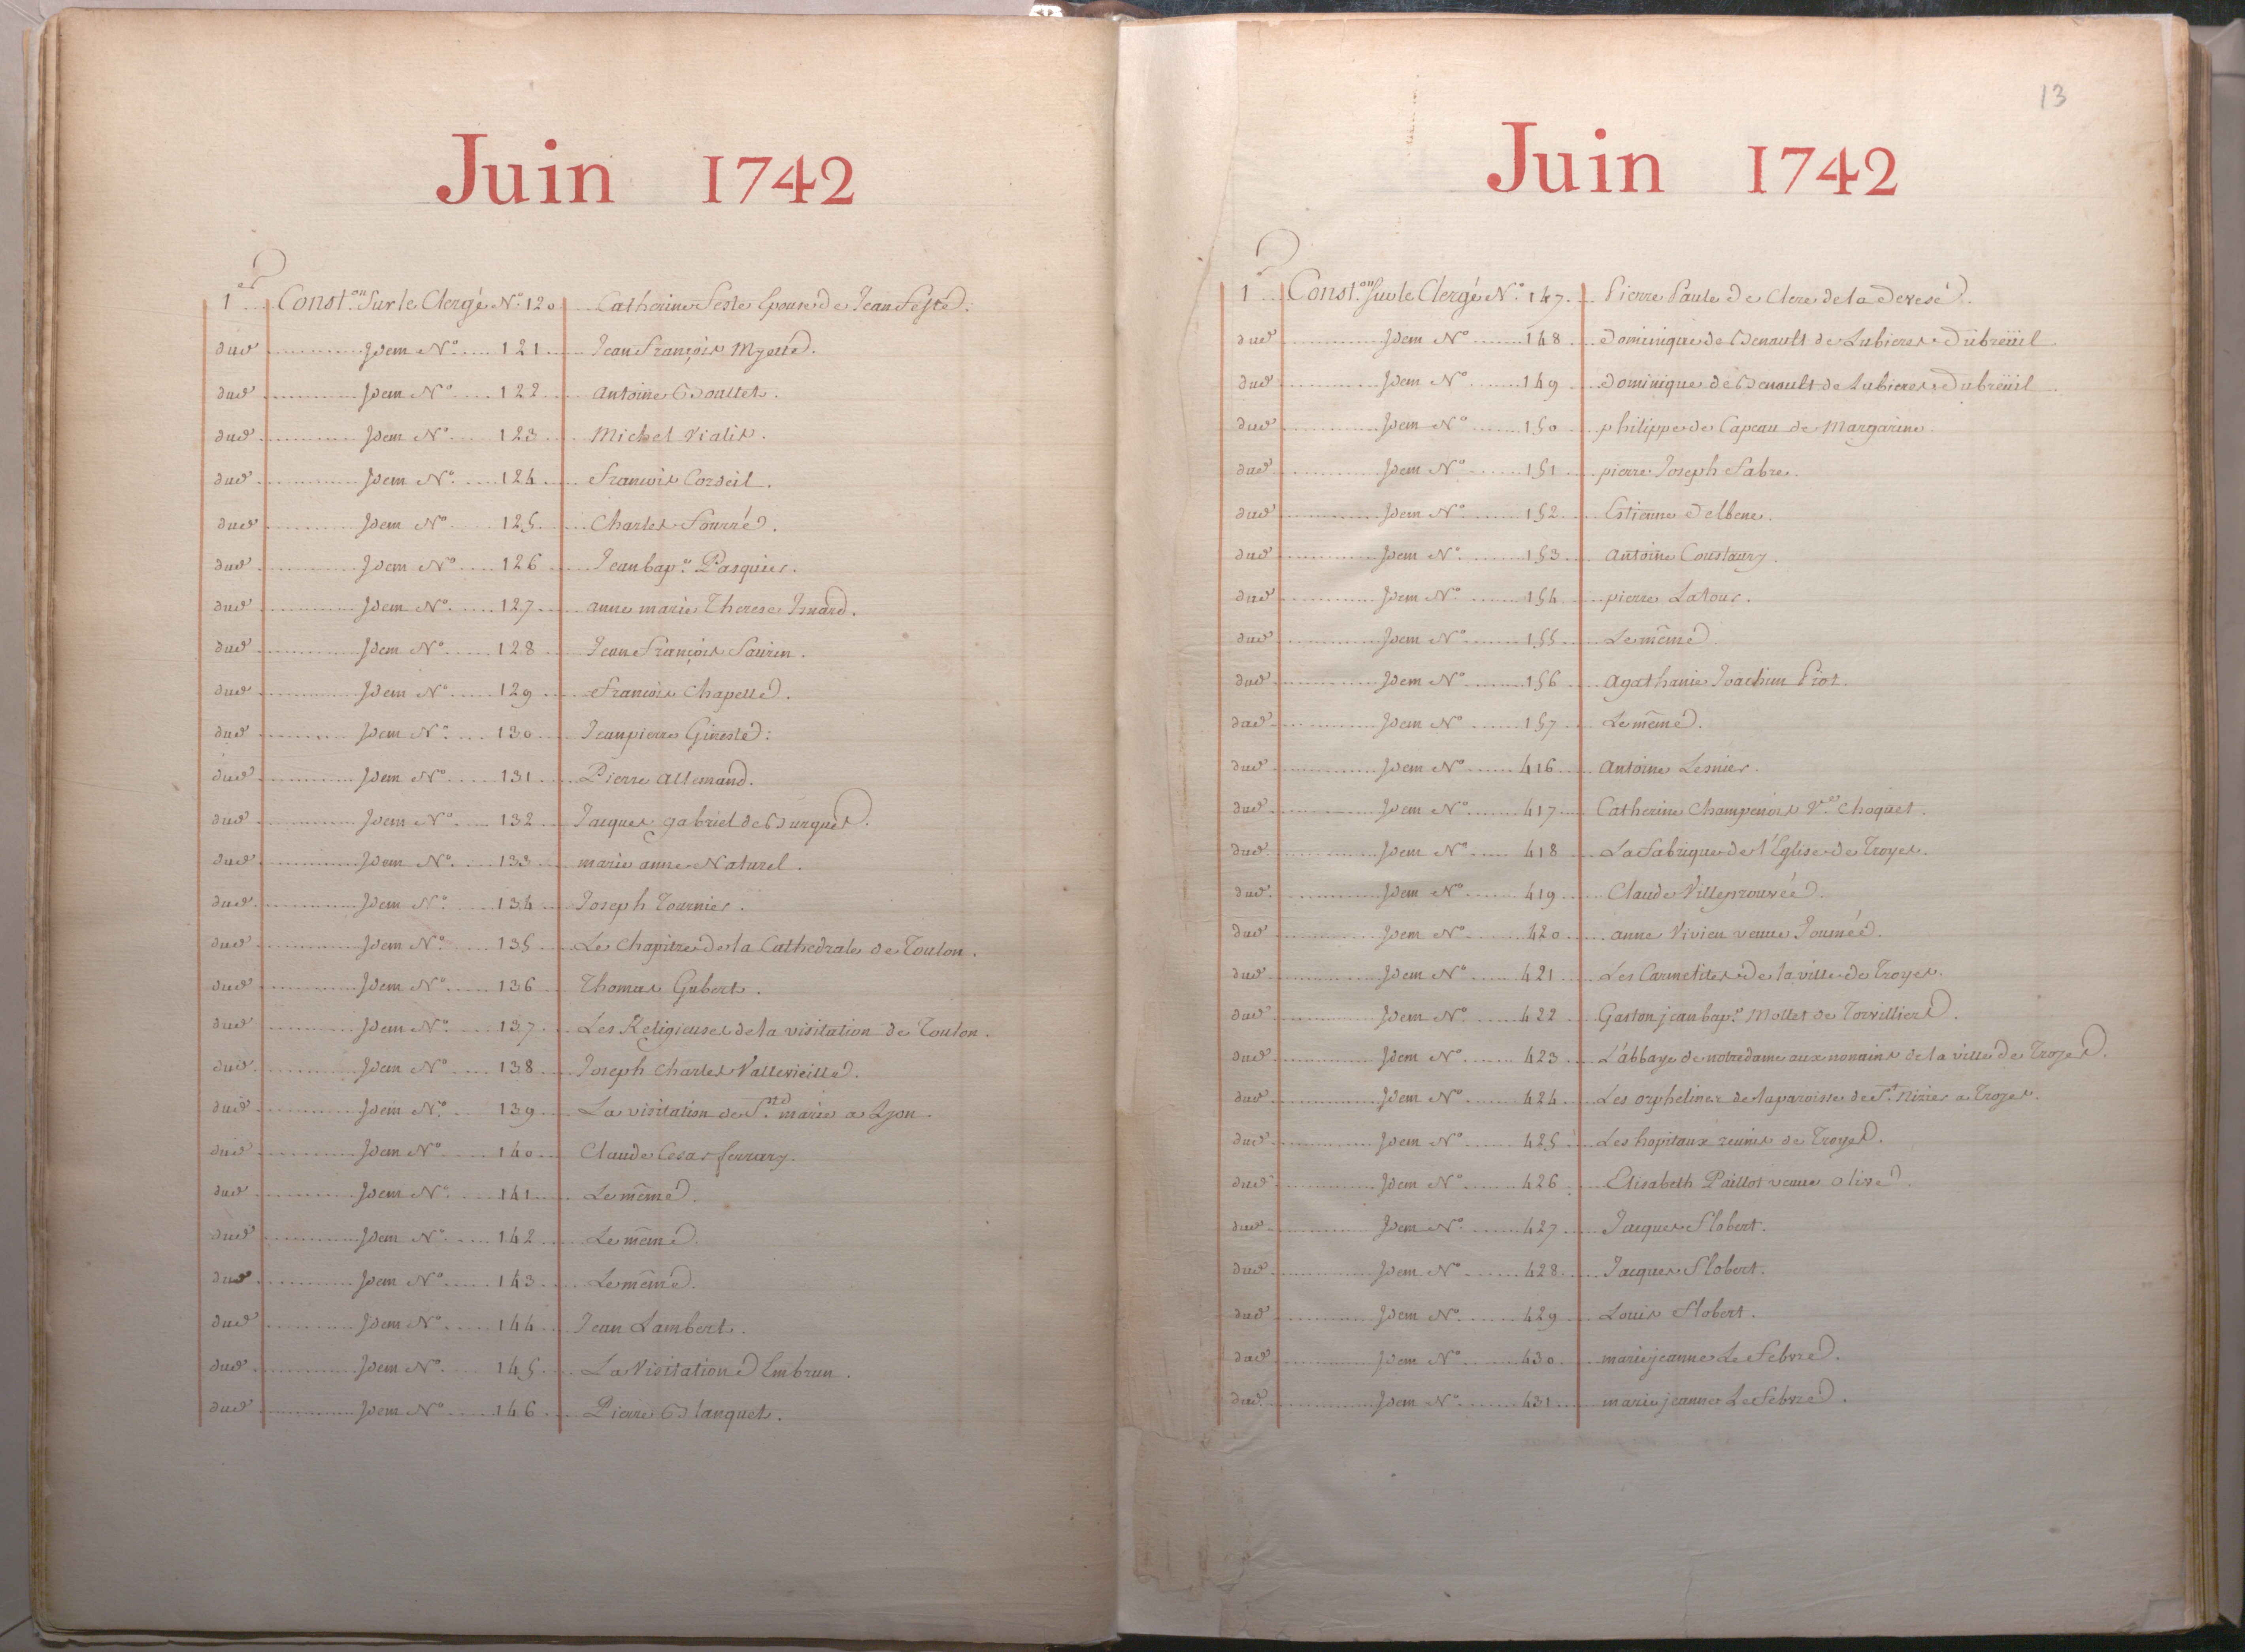 Juin 1742
1er Const.on Sur le Clergé N.o 120 Catherine Feste Epouse de Jean Feste.
dud Idem N.o 121 Jean François Myette.
dud Idem N.o 122 Antoine Boullet.
dud Idem N.o 123 Michel Vialis.
dud Idem N.o 124 François Cordeil.
dud Idem N.o 125 Charles Fourré.
dud Idem N.o 126 Jean bap.e Pasquier.
dud Idem N.o 127 anne marie Therese Isnard.
dud Idem N.o 128 Jean François Saurin.
dud Idem N.o 129 François Chapelle.
dud Idem N.o 130 Jean pierre Gineste:
dud Idem N.o 131 Pierre Allemand.
dud Idem N.o 132 Jacques gabriel de Burgues.
dud Idem N.o 133 marie anne Naturel.
dud Idem N.o 134 Joseph Tournier.
dud Idem N.o 135 Le Chapitre de la Cathedrale de Toulon.
dud Idem N.o 136 Thomas Gubert.
dud Idem N.o 137 Les Religieuses de la visitation de Toulon.
dud Idem N.o 138 Joseph Charles Vallevieille.
dud Idem N.o 139 La visitation de S.te marie a Lyon.
dud Idem N.o 140 Claude Cesar ferrary.
dud Idem N.o 141 Le même.
dud Idem N.o 142 Le même.
dud Idem N.o 143 Le même.
dud Idem N.o 144 Jean Lambert.
dud Idem N.o 145 La Visitation d'Embrun.
dud Idem N.o 146 Pierre Blanquet.
13
Juin 1742
1er Const.on Sur le Clergé N.o 147 Pierre Paule de Clere de la deresé.
dud Idem N.o 148 dominique de Benault de Lubieres Dubreüil
dud Idem N.o 149 dominique de Benault de Lubieres Dubreüil
dud Idem N.o 150 philippe de Capeau de Margarine.
dud Idem N.o 151 pierre Joseph Fabre.
dud Idem N.o 152 Estienne Delbene.
dud Idem N.o 153 Antoine Coustaury.
dud Idem N.o 154 pierre Latour.
dud Idem N.o 155 Le même.
dud Idem N.o 156 Agathanie Joachim Piot.
dud Idem N.o 157 Le même.
dud Idem N.o 416 Antoine Lesnier.
dud Idem N.o 417 Catherine Champenois V.e Choquet.
dud Idem N.o 418 La fabrique de l'Eglise de Troyes.
dud Idem N.o 419 Claude Villeprouvée.
dud Idem N.o 420 anne Vivien veuve Journée.
dud Idem N.o 421 Les Carmelites de la ville de Troyes.
dud Idem N.o 422 Gaston jean bap.e Mollet de Torvilliers.
dud Idem N.o 423 L'abbaye de notredame aux nonnains de la ville de Troyes.
dud Idem N.o 424 Les orphelines de la paroisse de S.t Nizier a Troyes.
dud Idem N.o 425 Les hopitaux reunis de Troyes.
dud Idem N.o 426 Elisabeth Paillot veuve olive.
dud Idem N.o 427 Jacques Flobert.
dud Idem N.o 428 Jacques Flobert.
dud Idem N.o 429 Louis Flobert.
dud Idem N.o 430 marie jeanne Le Febvre.
dud Idem N.o 431 marie jeanne Le Febvre.